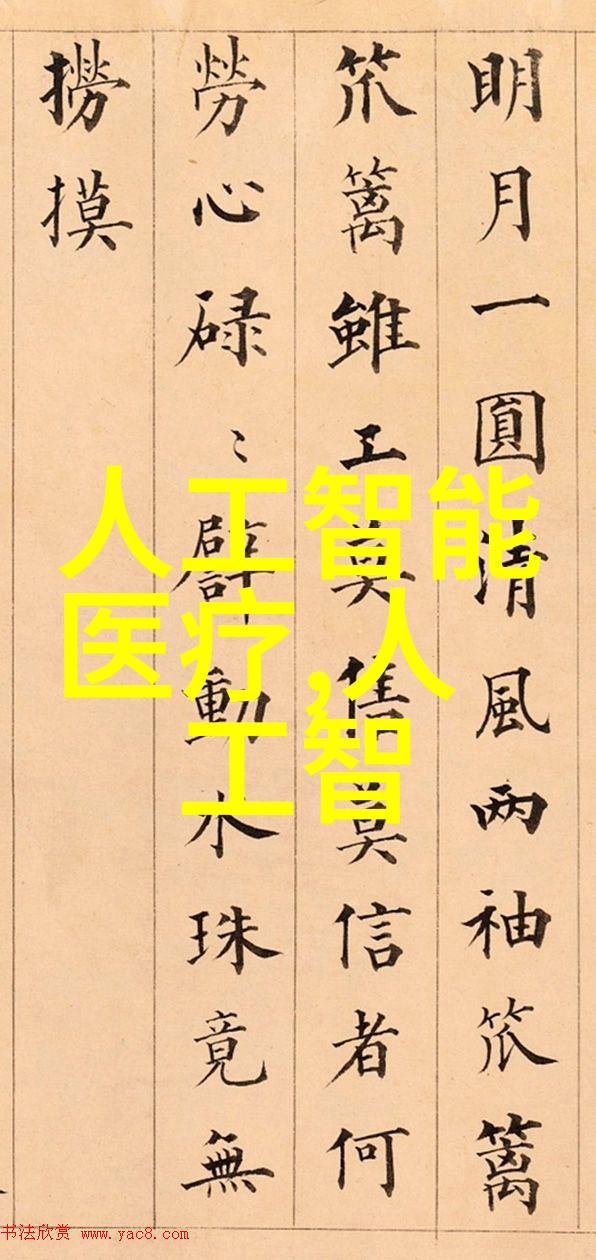 明月一圓清風两袖笊篱
笊篱雖工莫售莫信者何
勞心碌〻動水珠竟無
撈摸
人工智能
医疗,人
工智
书法欣赏 www.yac8.com